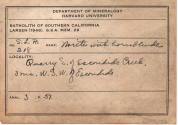 DEPARTMENT OF MINERALOGY
HARVARD UNIVERSITY
BATHOLITH OF SOUTHERN CALIFORNIA
LARSEN (1948), G.S.A. MEM. 29
No. S.L.R. NAME Norite with hornblende
218
LOCALITY
Quarry S. of Escondido Creek,
3 mi. W.S.W. of Escondido
ANAL.